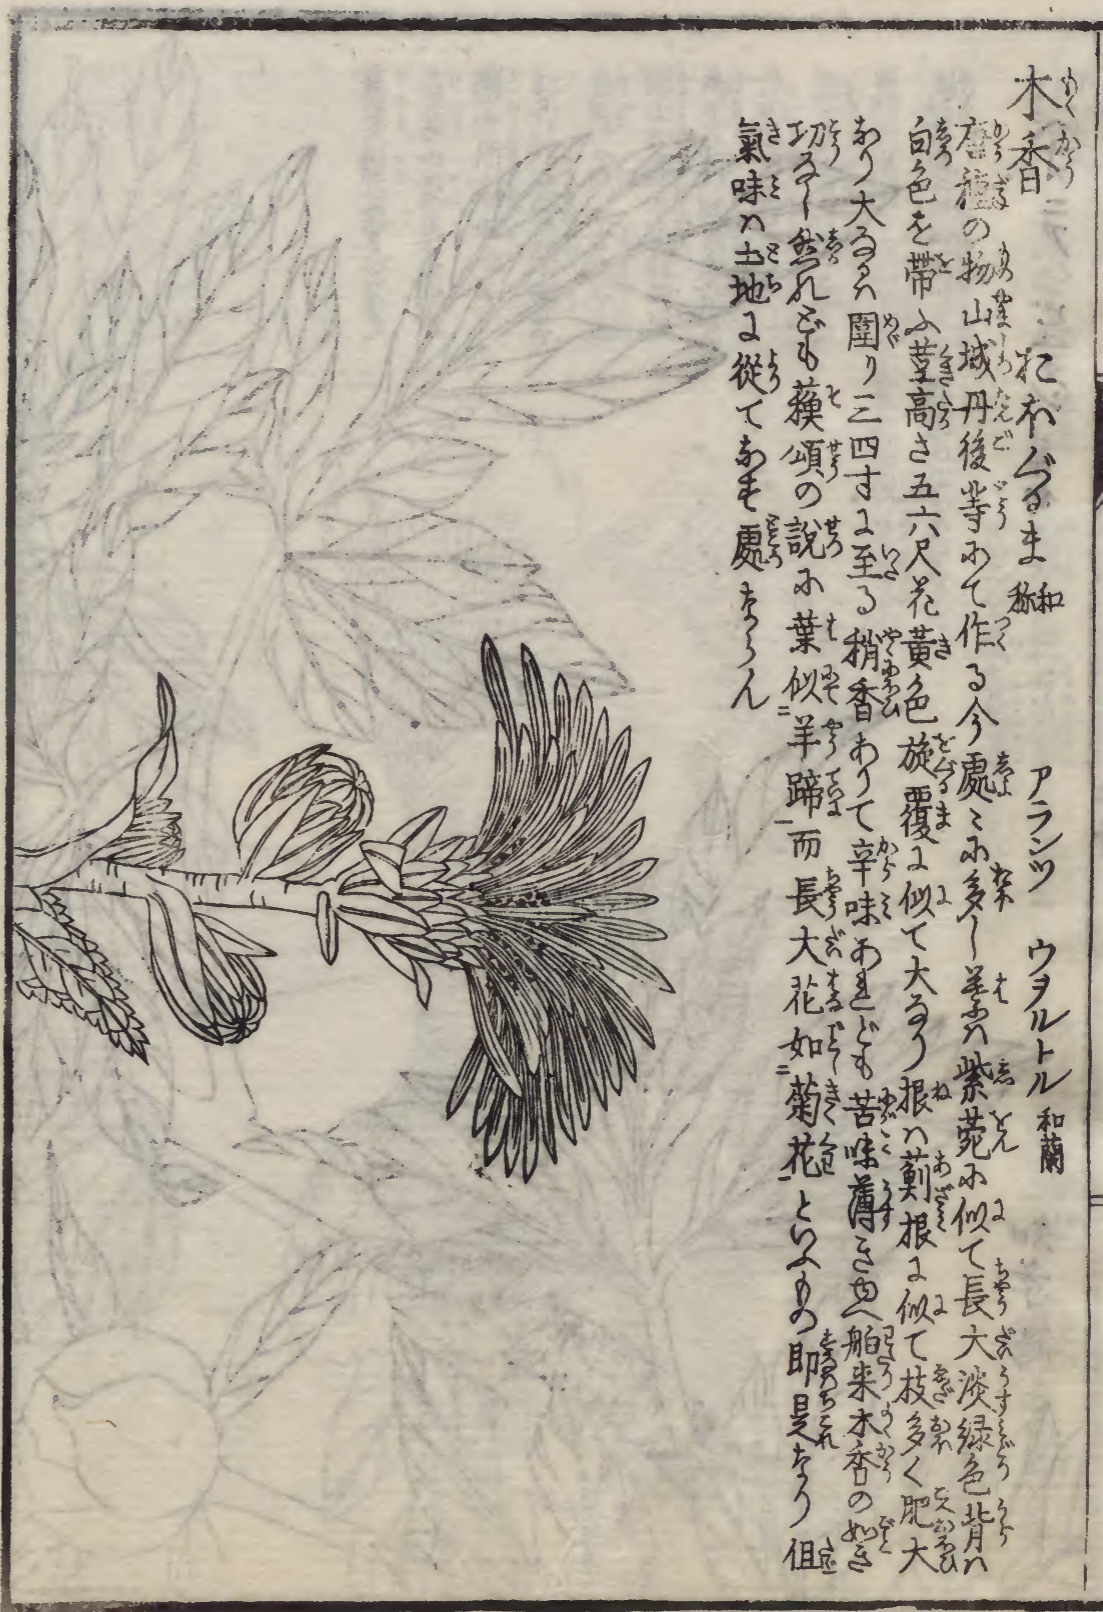 木香 おおぐるま 和称 アランツ ウヲルトル 和蘭
唐種の物山城丹後等にて作る今處〻に多し葉ハ紫菀に似て長大淡緑色背ハ
白色を帶ふ莖高さ五六尺花黄色旋覆に似て大なり根ハ薊根に似て枝多く肥大
なり大なるハ圍り三四寸に至る稍香ありて辛味あれども苦味薄きゆへ舶来木香の如き
切なし然れども蘓頌の説に葉似二羊蹄一而長大花如二菊花一といふもの即是なり但
氣味ハ土地に從てなす處ならん